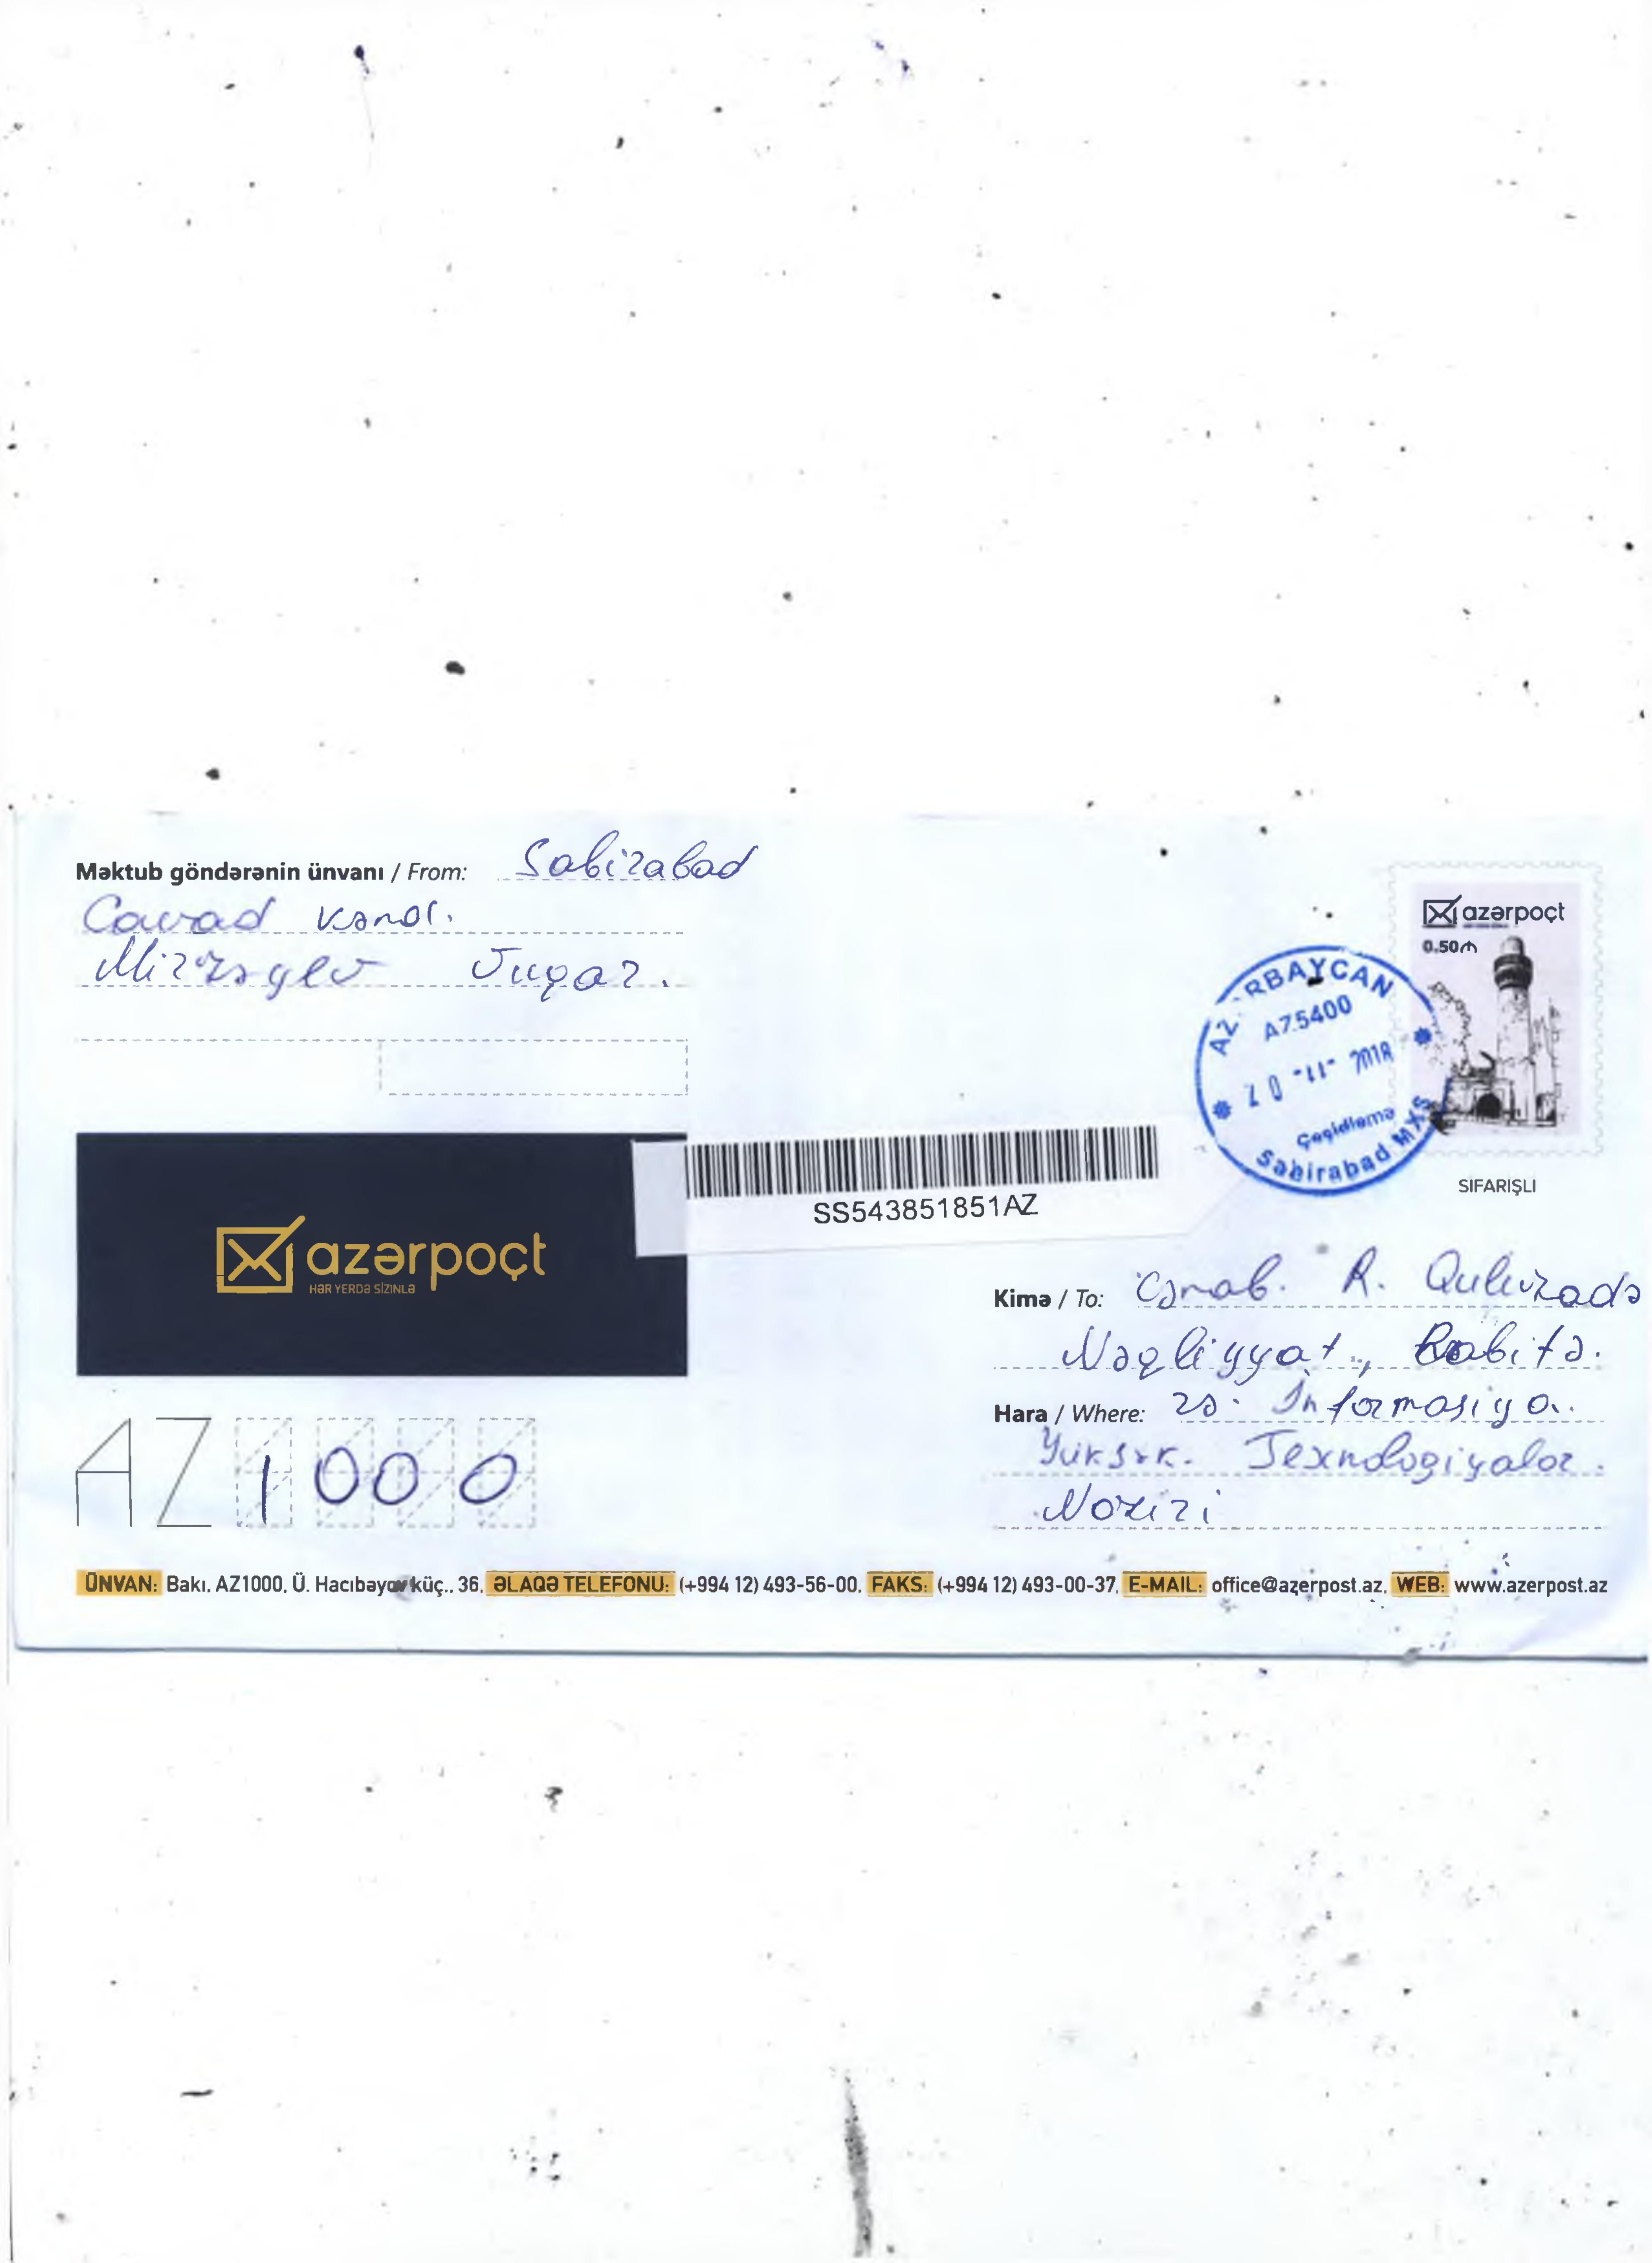 Məktub göndərənin ünvanı / From: Sabirabad
Cavad kənd.
Mirzəyev Vuqar.
azərpoçt
0.50₼
AZƏRBAYCAN
AZ5400
20 -11- 2018
Çeşidləmə
Sabirabad MXŞ
SIFARIŞLI
SS543851851AZ
azərpoçt
HƏR YERDƏ SİZİNLƏ
Kimə / To: Cənab. R. Quluzadə
Nəqliyyat, Rabitə.
Hara / Where: və. İnformasiya.
Yüksək. Texnologiyalar.
Naziri
AZ 1000
ÜNVAN: Bakı, AZ1000, Ü. Hacıbəyov küç., 36, ƏLAQƏ TELEFONU: (+994 12) 493-56-00, FAKS: (+994 12) 493-00-37, E-MAIL: office@azerpost.az, WEB: www.azerpost.az